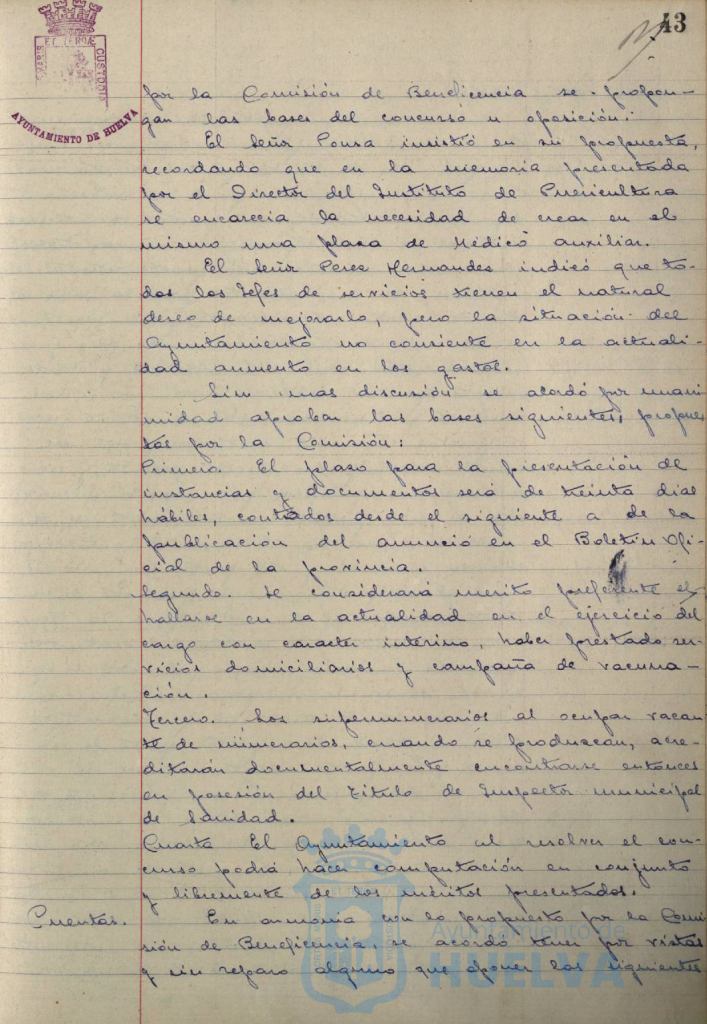 43
AYUNTAMIENTO DE HUELVA
por la Comisión de Beneficencia se propon-
gan las bases del concurso u oposición.
El Señor Pousa insistió en su propuesta,
recordando que en la memoria presentada
por el Director del Instituto de Puericultura
se encarecia la necesidad de crear en el
mismo una plaza de Médico auxiliar.
El Señor Perez Hernandez indicó que to-
dos los Jefes de servicios tienen el natural
deseo de mejorarlo, pero la situación del
Ayuntamiento no consiente en la actuali-
dad aumento en los gastos.
Sin mas discusión se acordó por unani
midad aprobar las bases siguientes propues
tas por la Comisión:
Primero. El plazo para la presentación de
instancias y documentos será de treinta dias
hábiles, contados desde el siguiente a de la
publicación del anuncio en el Boletin Ofi-
cial de la provincia.
Segundo. Se considerará merito preferente el
hallarse en la actualidad en el ejercicio del
cargo con caracter interino, haber prestado ser-
vicios domiciliarios y campaña de vacuna-
ción.
Tercero. Los supernumerarios al ocupar vacan
te de númerarios, cuando se produzcan, acre-
ditarán documentalmente encontrarse entonces
en posesión del Titulo de Inspector municipal
de Sanidad.
Cuarta El Ayuntamiento al resolver el con-
curso podrá hacer computación en conjunto
y libremente de los méritos presentados.
Cuentas. En armonia con lo propuesto por la Comi
sión de Beneficencia, se acordó tener por vistas
y sin reparo alguno que oponer las siguientes
Ayuntamiento de
HUELVA